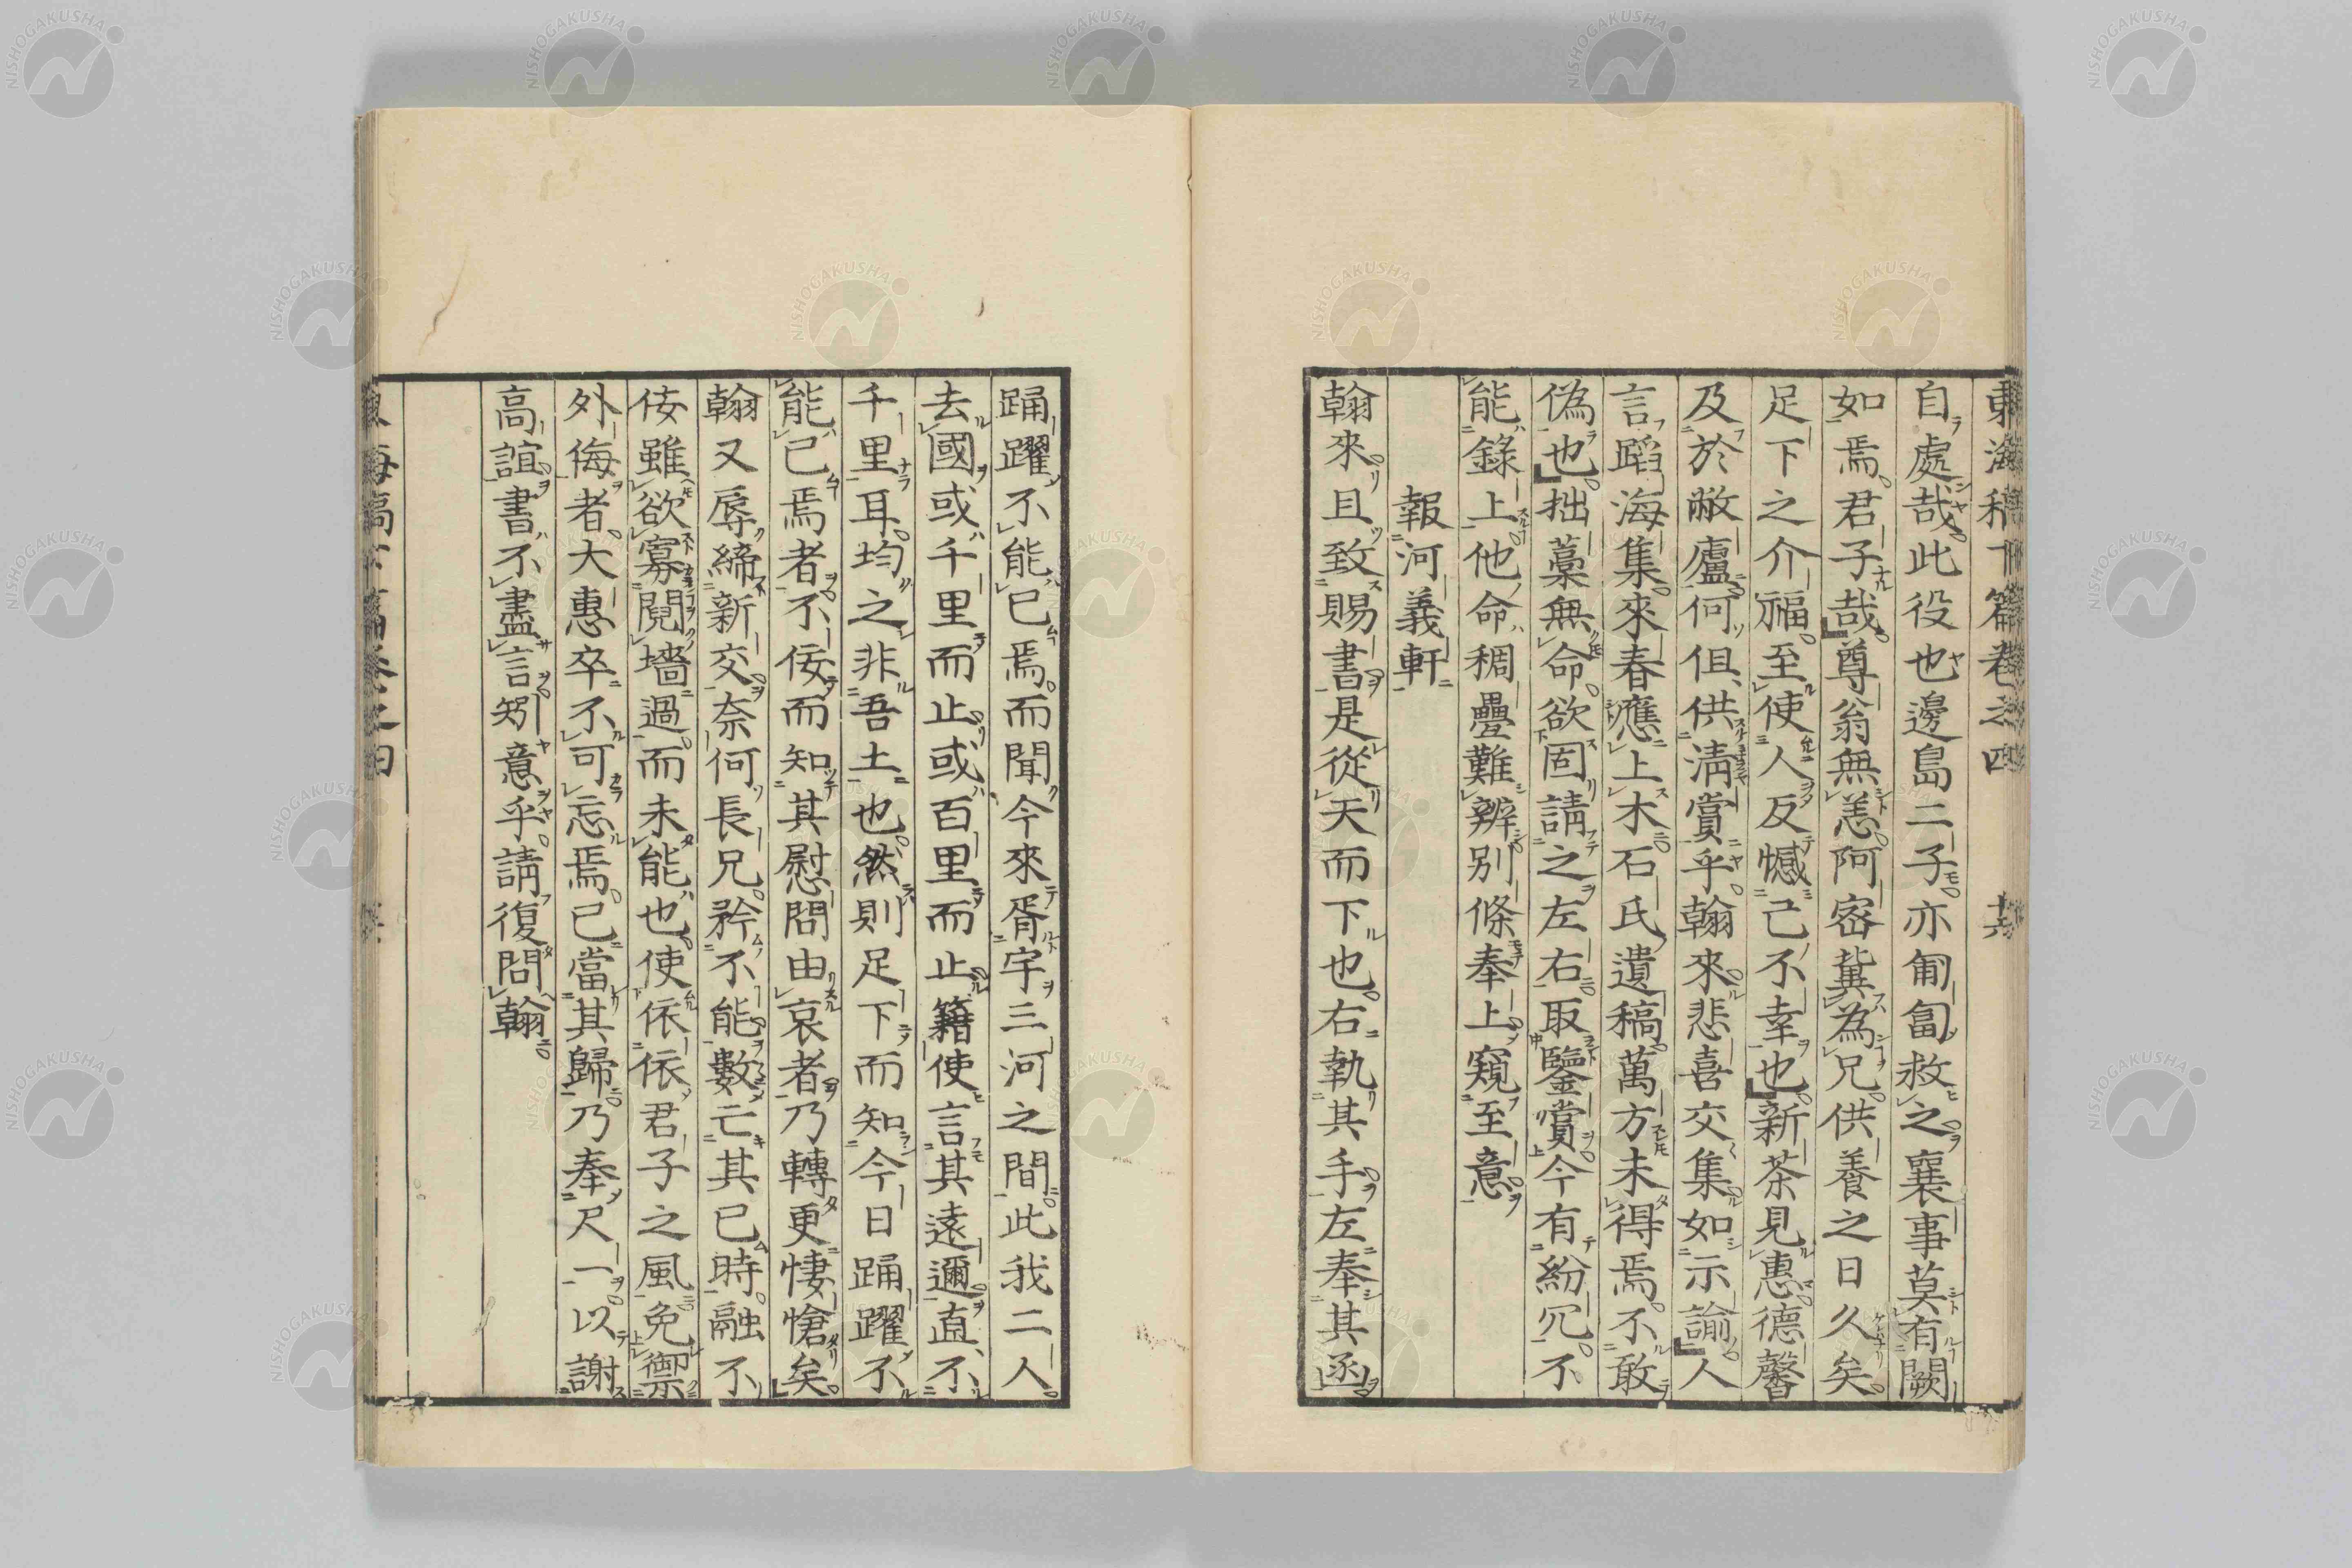 東海稿下篇卷之四 十六
自處哉此役也邊島二子亦匍匐救之襄事莫有闕
如焉君子哉尊翁無恙阿密糞為兄供養之日久矣
足下之介福至使人反憾己不幸也新茶見惠德馨
及於敝廬何但供淸賞乎翰來悲喜交集如示諭人
言蹈海集來春應上木石氏遺稿萬方未得焉不敢
偽也拙藁無命欲固請之左右取鑒賞今有紛冗不
能錄上他命稠疊難辨別條奉上窺至意
報河義軒
翰來且致賜書是從天而下也右執其手左奉其函
踊躍不能已焉而聞今來胥宇三河之間此我二人
去國或千里而止或百里而止籍使言其遠邇直不
千里耳均之非吾土也然則足下而知今日踊躍不
能已焉者不佞而知其慰問由哀者乃轉更悽愴矣
翰又辱締新交奈何長兄矜不能數亡其已時融不
佞雖欲寡鬩墻過而未能也使依依君子之風免禦
外侮者大惠卒不可忘焉已當其歸乃奉尺一以謝
高誼書不盡言矧意乎請復問翰
海稿下篇卷之四
NISHOGAKUSHA